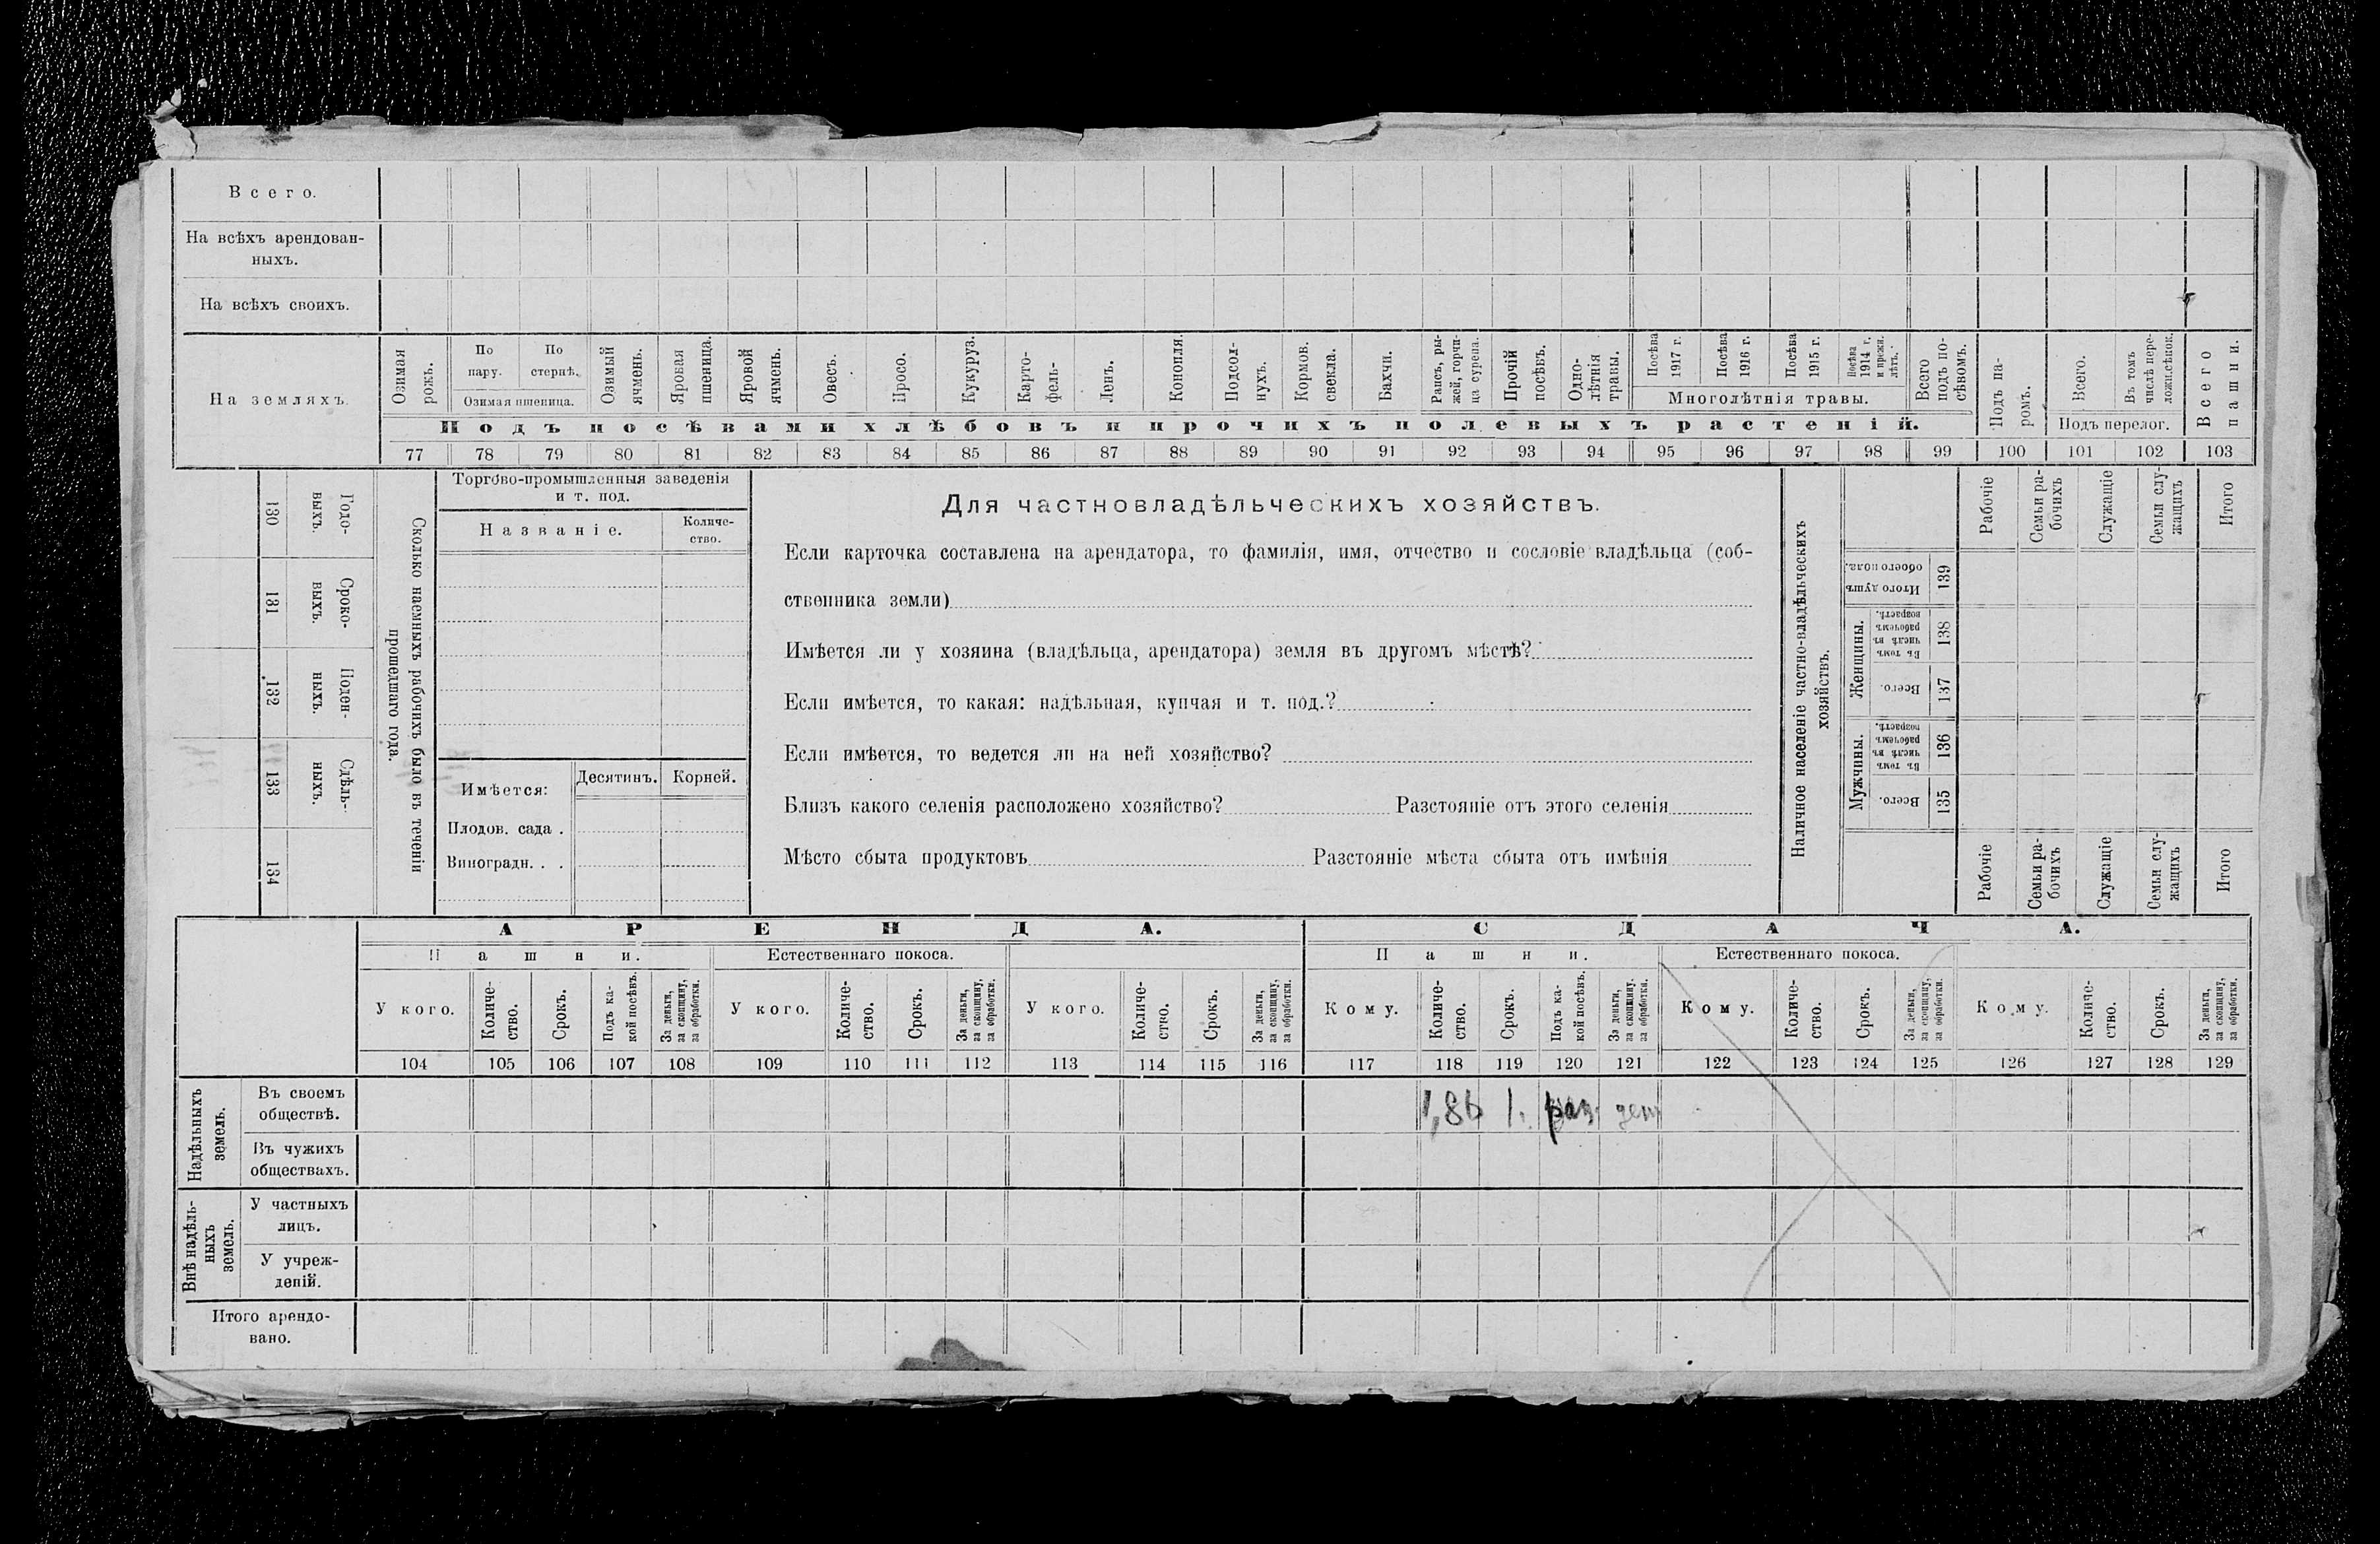 Всего.
На всѣхъ арендован-
ныхъ.
На всѣхъ своихъ.
На земляхъ.
Озимая рожь.
По пару.
По стернѣ.
Озимая пшеница.
Озимый ячмень.
Яровая пшеница.
Яровой ячмень.
Овесъ.
Просо.
Кукуруз.
Карто-
фель-
Ленъ.
Конопля.
Подсол-
нухъ.
Кормов.
свекла.
Бахчи.
Рапсъ, ры-
жей, горчи-
ца сурепа.
Прочій
посѣвъ.
Одно-
лѣтнія
травы.
Посѣва
1917 г.
Посѣва
1916 г.
Посѣва
1915 г.
Посѣва
1914 г.
и прежн.
лѣтъ.
Многолѣтнія травы.
Всего
подъ по-
сѣвомъ.
Подъ па-
ромъ.
Всего.
Въ томъ
числѣ пере-
ложи.сѣнок.
Подъ перелог.
Всего
пашни.
Подъ посѣвами хлѣбовъ и прочихъ полевыхъ растеній.
77 78 79 80 81 82 83 84 85 86 87 88 89 90 91 92 93 94 95 96 97 98 99 100 101 102 103
130
Годо-
выхъ.
131
Сроко-
выхъ.
132
Поден-
ныхъ.
133
Сдѣль-
ныхъ.
134
Сколько наемныхъ рабочихъ было въ теченіи
прошедшаго года.
Торгово-промышленныя заведенія
и т. под.
Названіе.
Количе-
ство.
Имѣется:
Десятинъ.
Корней.
Плодов. сада .
Виноградн. . .
Для частновладѣльческихъ хозяйствъ.
Если карточка составлена на арендатора, то фамилія, имя, отчество и сословіе владѣльца (соб-
ственника земли)
Имѣется ли у хозяина (владѣльца, арендатора) земля въ другомъ мѣстѣ?
Если имѣется, то какая: надѣльная, купчая и т. под.?
Если имѣется, то ведется ли на ней хозяйство?
Близъ какого селенія расположено хозяйство? Разстояніе отъ этого селенія
Мѣсто сбыта продуктовъ Разстояніе мѣста сбыта отъ имѣнія
Наличное населеніе частно-владѣльческихъ
хозяйствъ.
Рабочіе
Семьи ра-
бочихъ
Служащіе
Семьи слу-
жащихъ
Итого
Итого душъ
обоего пола.
139
Женщины.
Въ томъ
числѣ въ
рабочемъ
возрастѣ.
138
Всего.
137
Мужчины.
Въ томъ
числѣ въ
рабочемъ
возрастѣ.
136
Всего.
135
Рабочіе
Семьи ра-
бочихъ
Служащіе
Семьи слу-
жащихъ
Итого
АРЕНДА.
СДАЧА.
Пашни.
Естественнаго покоса.
Пашни.
Естественнаго покоса.
У кого.
Количе-
ство.
Срокъ.
Подъ ка-
кой посѣвъ.
За деньги,
за скопщину,
за обработки.
У кого.
Количе-
ство.
Срокъ.
За деньги,
за скопщину,
за обработки.
У кого.
Количе-
ство.
Срокъ.
За деньги,
за скопщину,
за обработки.
Кому.
Количе-
ство.
Срокъ.
Подъ ка-
кой посѣвъ.
За деньги,
за скопщину.
за обработки.
Кому.
Количе-
ство.
Срокъ.
За деньги,
за скопщину,
за обработки.
Кому.
Количе-
ство.
Срокъ.
За деньги,
за скопщину,
за обработки.
104 105 106 107 108 109 110 111 112 113 114 115 116 117 118 119 120 121 122 123 124 125 126 127 128 129
Надѣльныхъ
земель.
Въ своемъ
обществѣ.
1,86 1. раз. ден
Въ чужихъ
обществахъ.
Внѣ надѣль-
ныхъ
земель.
У частныхъ
лицъ.
У учреж-
деній.
Итого арендо-
вано.